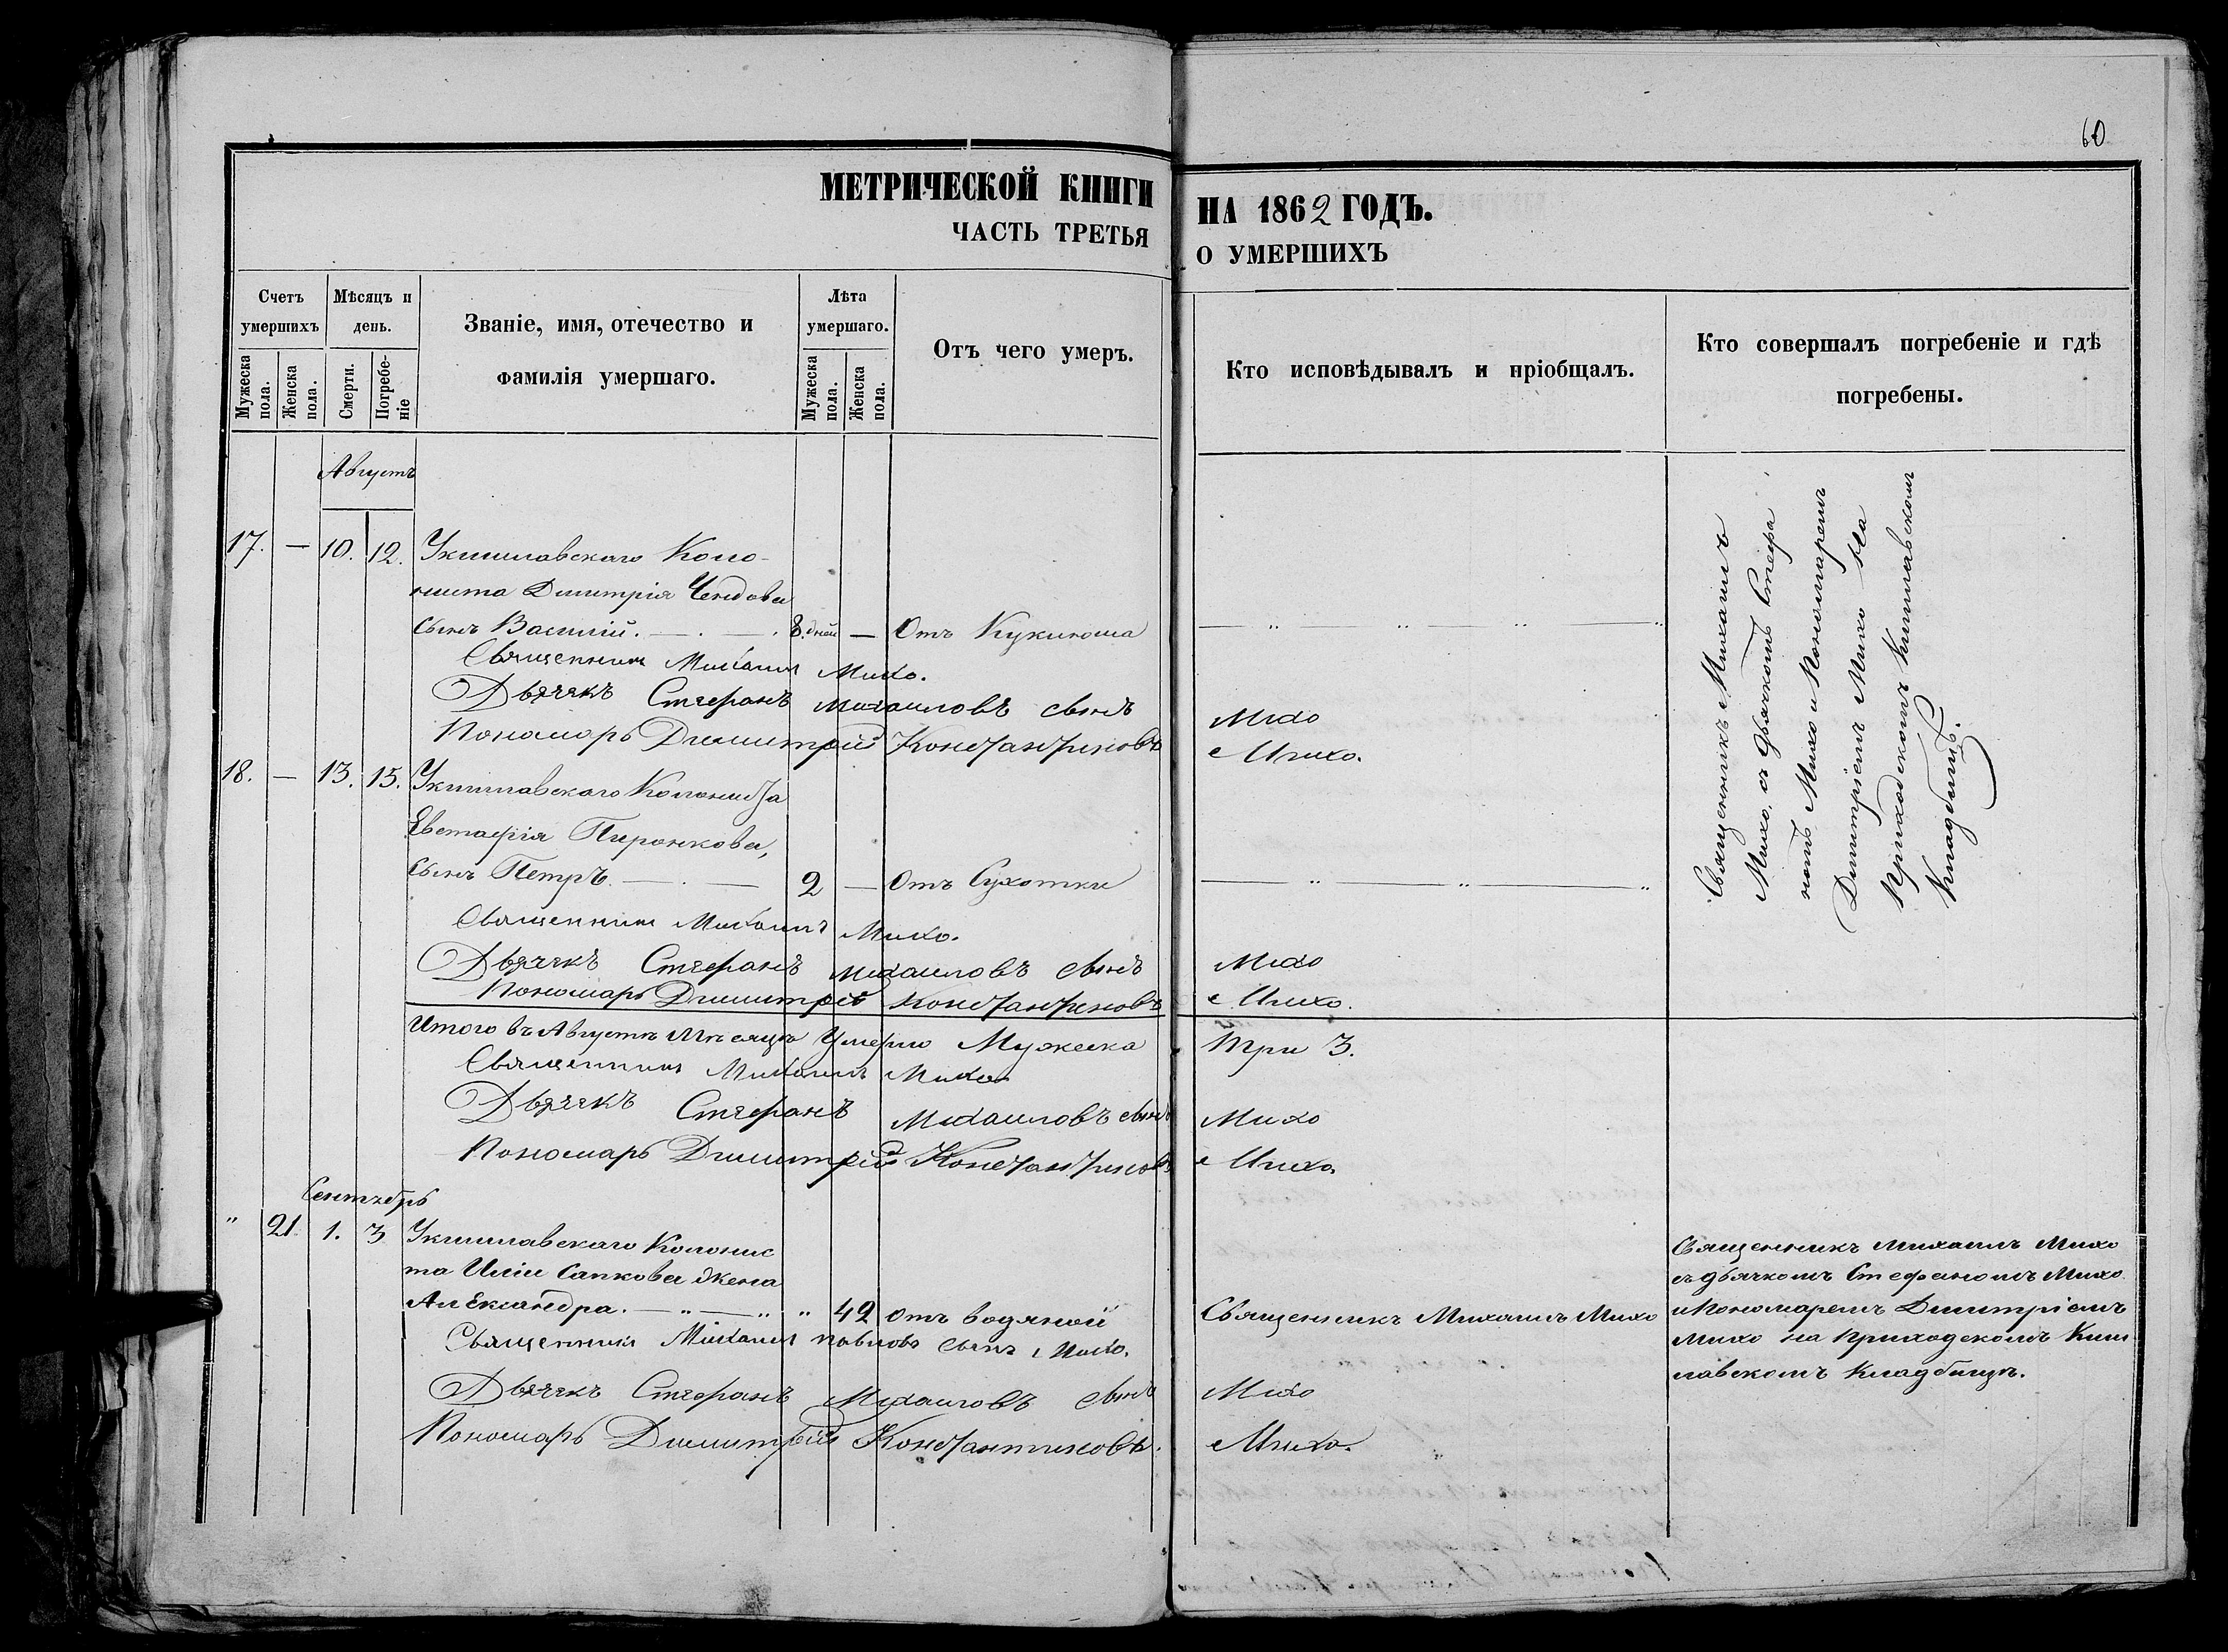 60
МЕТРИЧЕСКОЙ КНИГИ НА 1862 ГОДЪ.
ЧАСТЬ ТРЕТЬЯ О УМЕРШИХЪ
Счетъ умершихъ
Мужеска пола.
Женска пола.
Мѣсяцъ и день.
Смерти.
Погребеніе
Званіе, имя, отечество и фамилія умершаго.
Лѣта умершаго.
Мужеска пола.
Женска пола.
Отъ чего умеръ.
Кто исповѣдывалъ и пріобщалъ.
Кто совершалъ погребеніе и гдѣ погребены.
Августъ
17. — 10. 12. Укишлавскаго Коло-
ниста Димитрія Чендова
сынъ Василій. 8. дней — Отъ Кукиюша
Священникъ Михаилъ Михо.
Дьячекъ Стефанъ Михаиловъ сынъ Михо
Пономарь Димитрій Константиновъ Михо.
18. — 13. 15. Укишлавскаго Колониста
Евстафія Пиронкова,
сынъ Петръ. 2 — Отъ Сухотки
Священникъ Михаилъ Михо.
Дьячекъ Стефанъ Михаиловъ сынъ Михо
Пономарь Димитрій Константиновъ Михо.
Священникъ Михаилъ
Михо, съ дьячкомъ Стефа
номъ Михо и Пономаремъ
Димитріемъ Михо на
Приходскомъ Кишлавскомъ
Кладбищѣ.
Итого въ Августѣ Мѣсяцѣ Умерло Мужеска Три 3.
Священникъ Михаилъ Михо
Дьячекъ Стефанъ Михаиловъ сынъ Михо
Пономарь Димитрій Константиновъ Михо
Сентябрь
" 21 1. 3 Укишлавскаго Колонис
та Иліи Сапкова жена
Александра. — " — " " 42 отъ водяной
Священникъ Михаилъ Михо
Священникъ Михаилъ Павловъ сынъ Михо.
Дьячекъ Стефанъ Михаиловъ сынъ Михо
Пономарь Димитрій Константиновъ. Михо.
Священникъ Михаилъ Михо
съ дьячкомъ Стефаномъ Михо
и Пономаремъ Димитріемъ
Михо на Приходскомъ Киш
лавскомъ Кладбищѣ.